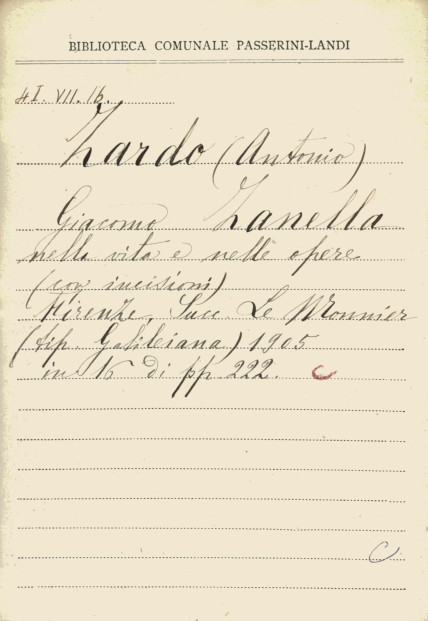 BIBLIOTECA COMUNALE PASSERINI-LANDI
4I. VII. 16.
Zardo (Antonio)
Giacomo Zanella
nella vita e nelle opere
(con incisioni)
Firenze, Succ. Le Monnier
(tip. Galileiana) 1905
in 16 di pp 222. C
C